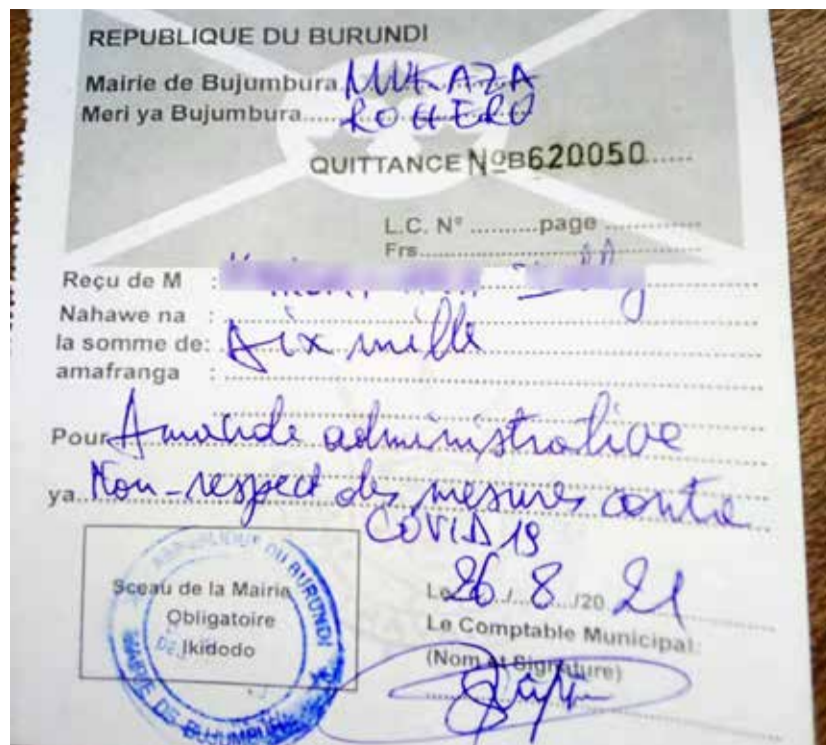 REPUBLIQUE DU BURUNDI
Mairie de Bujumbura MUKAZA
Meri ya Bujumbura...... ROHERO
QUITTANCE NºB620050......
L.C. Nº ..........page ..............
Frs..............................
Reçu de M :
Nahawe na :
la somme de: Dix mille
amafranga :
Pour Amande administrative
ya Non-respect des mesures contre
COVID 19
Sceau de la Mairie
Obligatoire
Ikidodo
REPUBLIQUE DU BURUNDI
MAIRIE DE BUJUMBURA
Le 26 / 8 /20 21
Le Comptable Municipal:
(Nom et Signature)